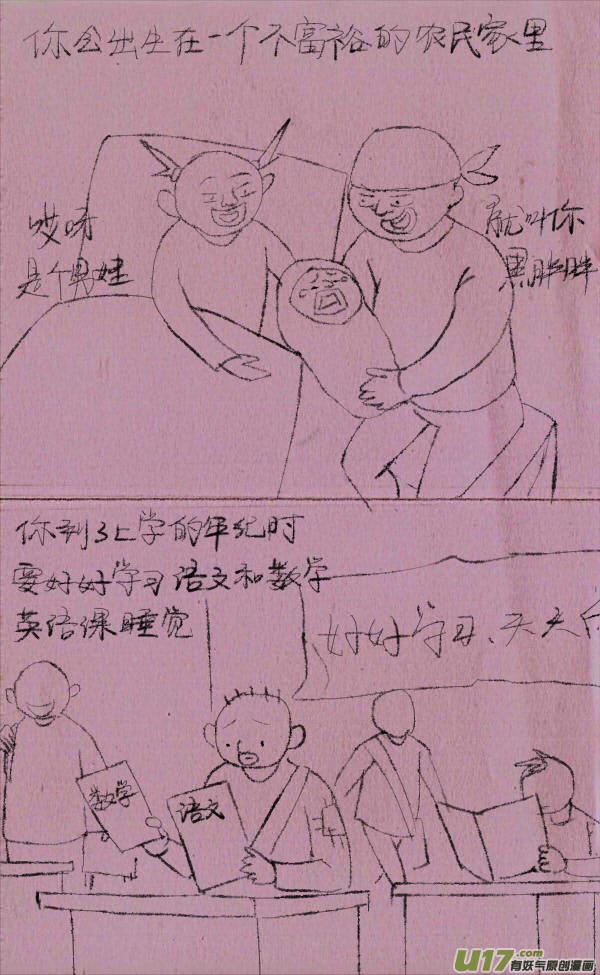 你会出生在一个不富裕的农民家里
哎呀
是个男娃
就叫你
黑胖胖
你到了上学的年纪时
要好好学习语文和数学
英语课睡觉
好好学习、天天
数学
语文
U17.com
有妖气原创漫画